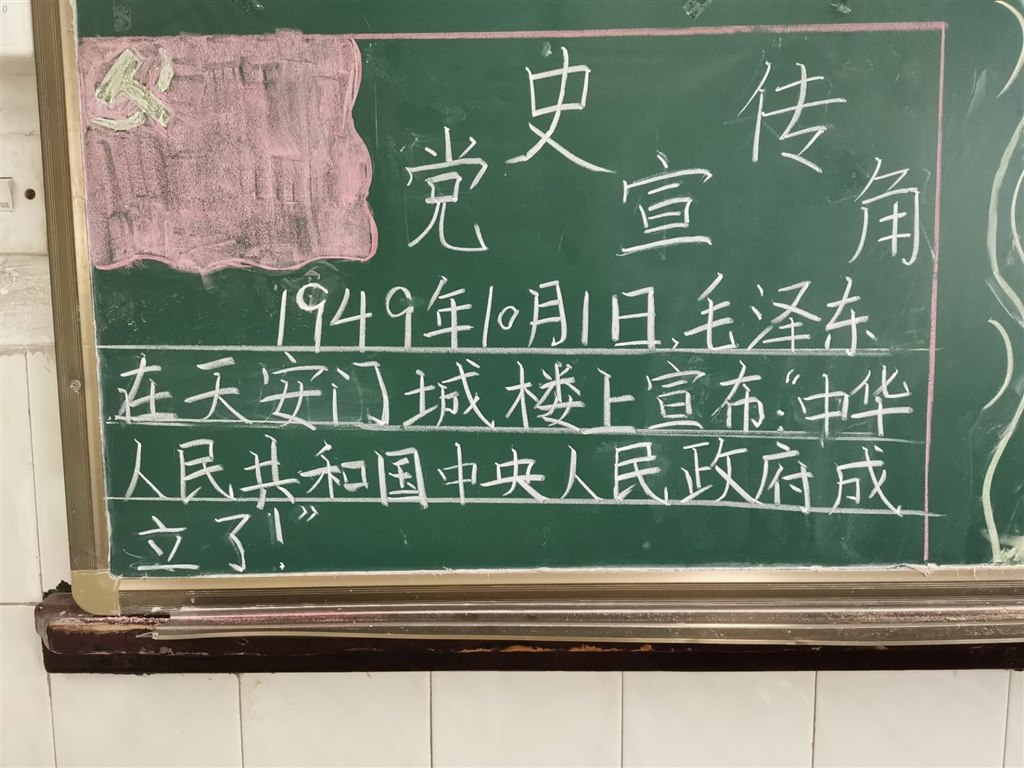 党史宣传角
1949年10月1日,毛泽东
在天安门城楼上宣布:“中华
人民共和国中央人民政府成
立了!”